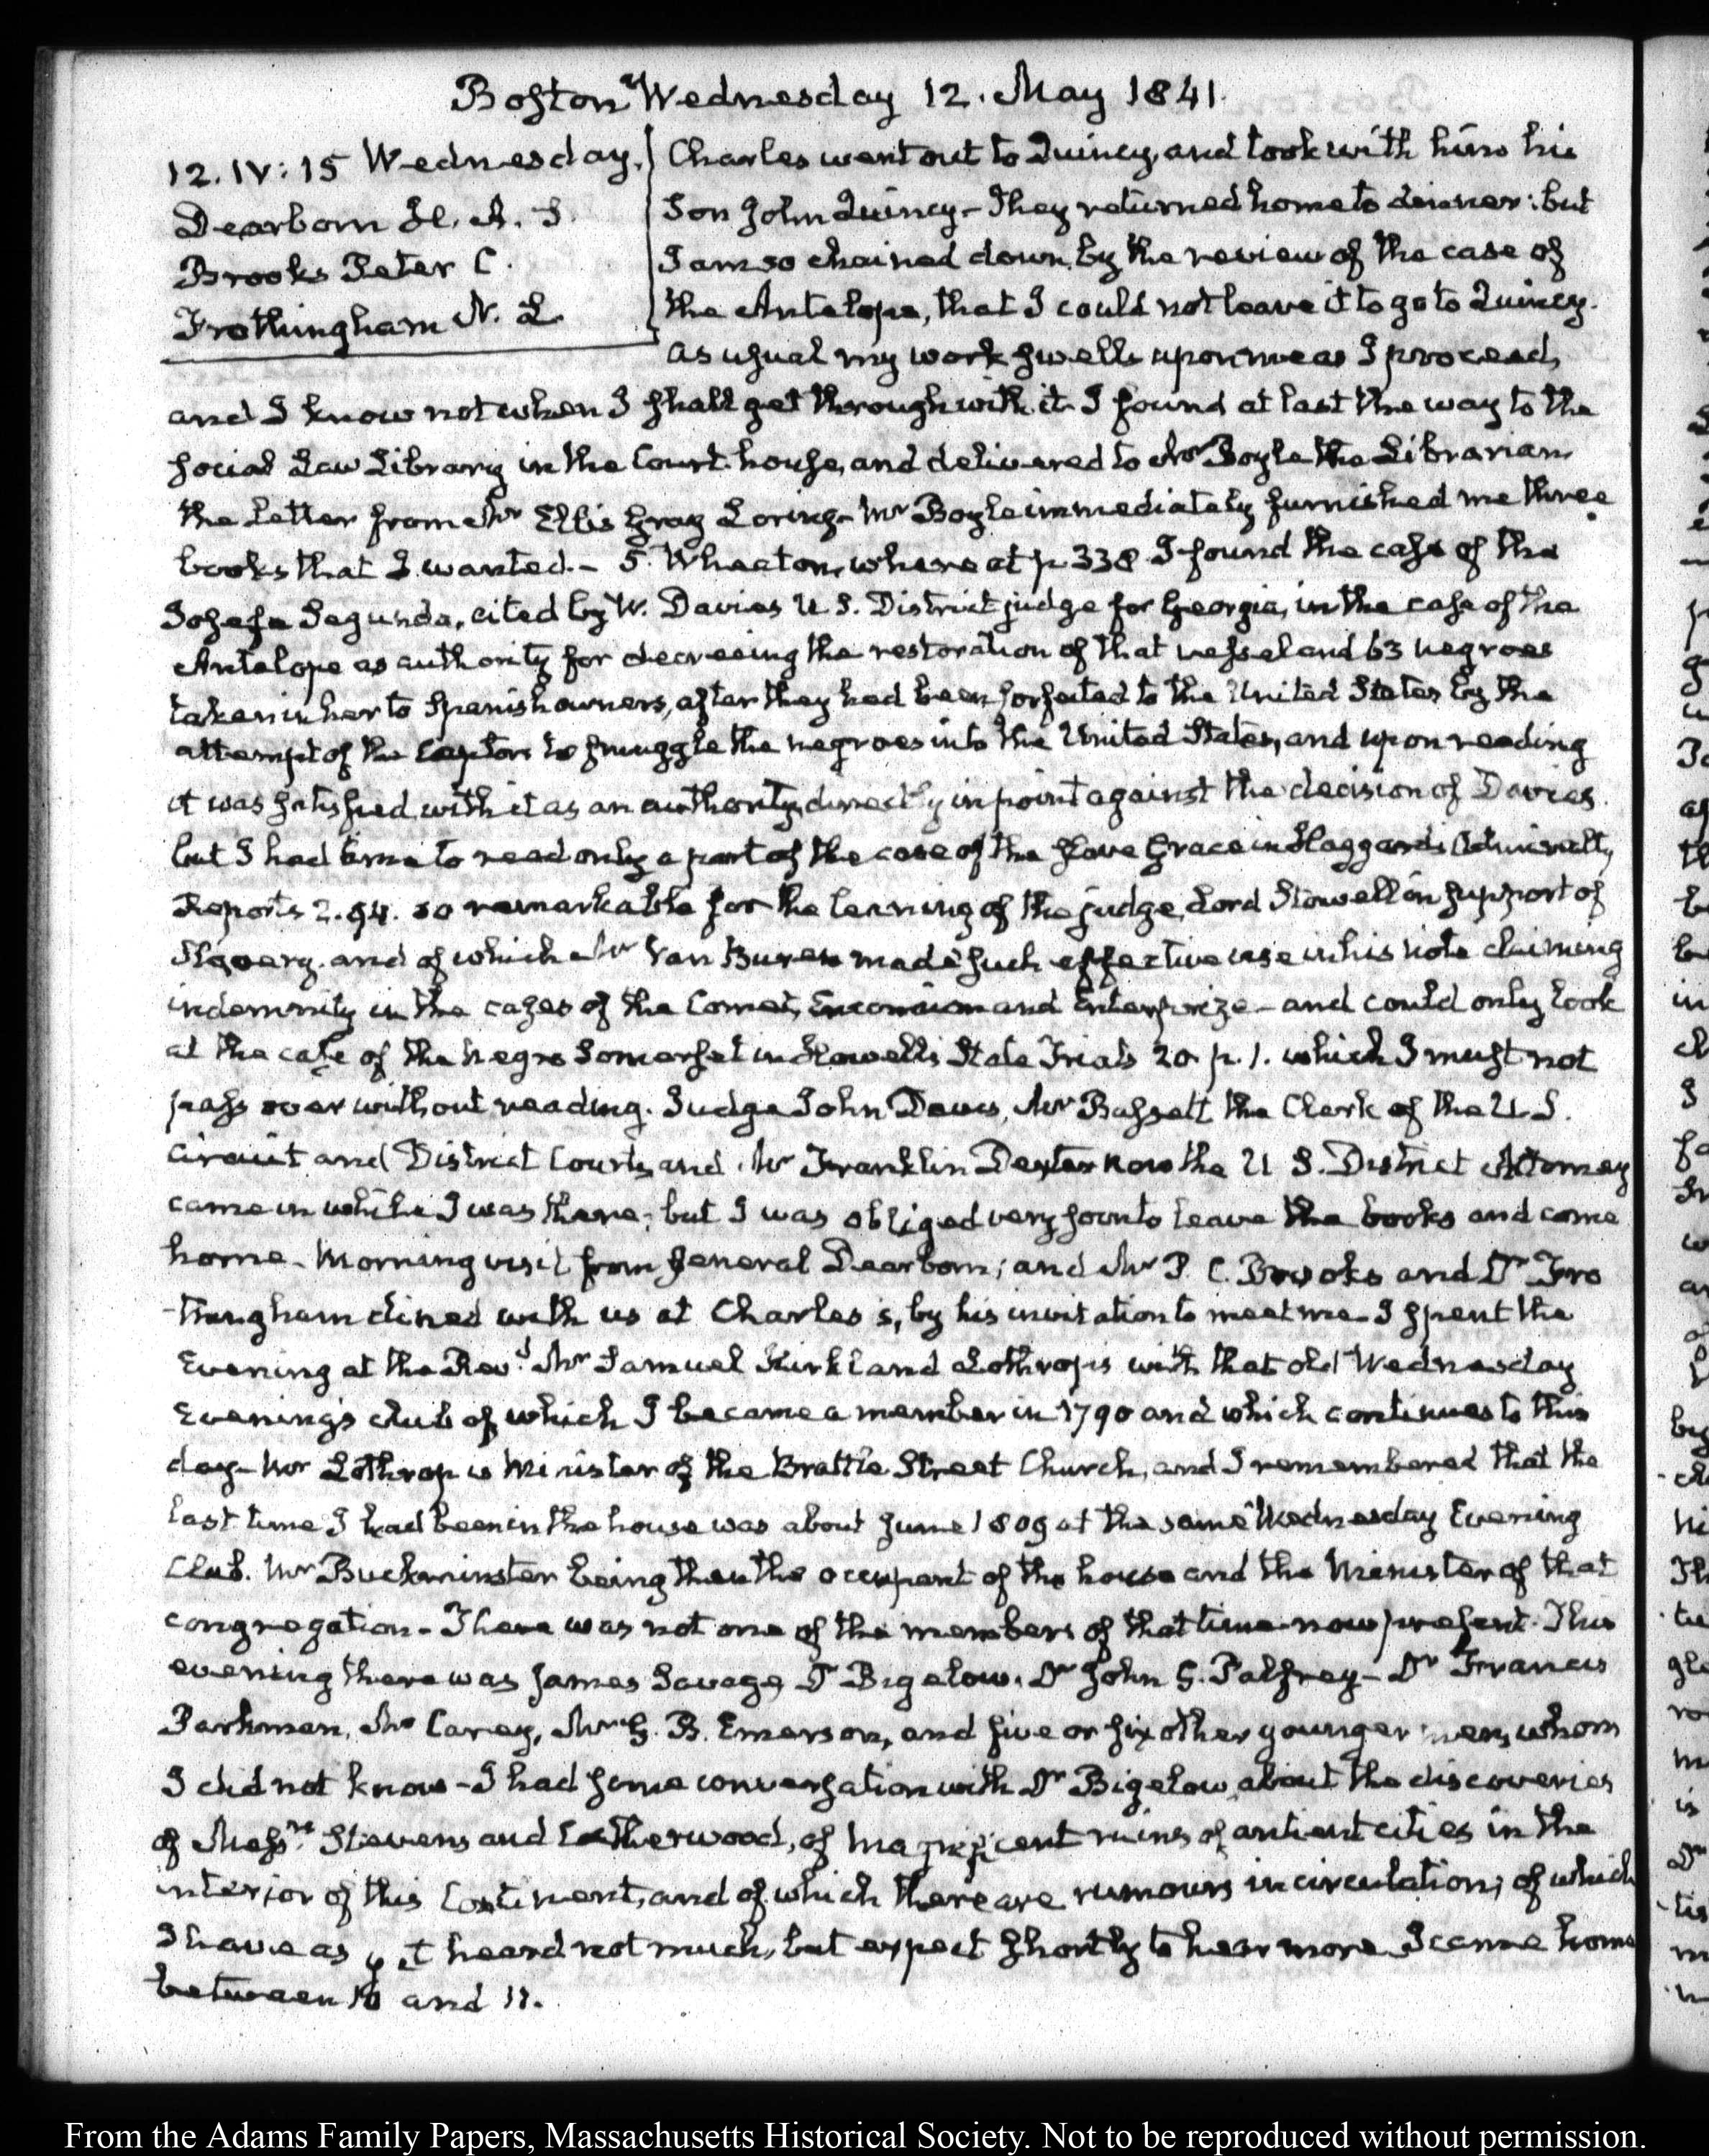 Boston Wednesday 12. May 1841.
12. IV: 15 Wednesday.
Dearborn H. A. S.
Brooks Peter C.
Frothingham N. L.
Charles went out to Quincy, and took with him his
Son John Quincy – They returned home to dinner: but
I am so chained down, by the review of the case of
the Antelope, that I could not leave it to go to Quincy.
as usual my work swells upon me as I proceed,
and I know not when I shall get through with it. I found at last the way to the
social Law Library in the Court-house, and delivered to Mr Boyle the Librarian
the Letter from Mr Ellis Gray Loring – Mr Boyle immediately furnished me three
books that I wanted. – 5. Wheaton, where at p. 338 I found the case of the
Josefa Segunda, cited by W. Davies U. S. District judge for Georgia, in the case of the
Antelope as authority for decreeing the restoration of that vessel and 63 negroes
taken in her to Spanish owners, after they had been forfeited to the United States by the
attempt of the Captors to smuggle the negroes into the United States, and upon reading
it was satisfied with it as an authority, directly in point against the decision of Davies.
but I had time to read only a part of the case of the Slave Grace in Haggard's Admiralty
Reports 2. 94. so remarkable for the learning of the judge, Lord Stowell in support of
Slavery. and of which Mr Van Buren made such effective use in his note claiming
indemnity in the cases of the Comet, Encomium and Enterprize – and could only look
at the case of the negro Somerset in Howell's State Trials 20. p. 1. which I must not
pass over without reading. Judge John Davis, Mr Bassett the Clerk of the U. S.
Circuit and District Courts, and Mr Franklin Dexter now the U S. District Attorney
came in while I was there; but I was obliged very soon to leave the books and come
home. Morning visit from General Dearborn; and Mr P. C. Brooks and Dr Fro
-thingham dined with us at Charles's, by his invitation to meet me. I spent the
Evening at the Revd Mr Samuel Kirkland Lothrop's with that old Wednesday
Evening's club of which I became a member in 1790 and which continues to this
day – Mr Lothrop is Minister of the Brattle Street Church, and I remembered that the
last time I had been in the house was about June 1809 at the same Wednesday Evening
Club. Mr Buckminster being then the occupant of the house and the Minister of that
congregation – There was not one of the members of that time now present. This
evening there was James Savage, Dr Bigelow, Dr John G. Palfrey – Dr Francis
Parkman, Mr Carey, Mr G. B. Emerson, and five or six other younger men, whom
I did not know – I had some conversation with Dr Bigelow, about the discoveries
of Messrs Stevens and Catherwood, of magnificent ruins of antient cities in the
interior of this Continent, and of which there are rumours in circulation; of which
I have as yet heard not much, but expect shortly to hear more. I came home
between 10 and 11.
From the Adams Family Papers, Massachusetts Historical Society. Not to be reproduced without permission.